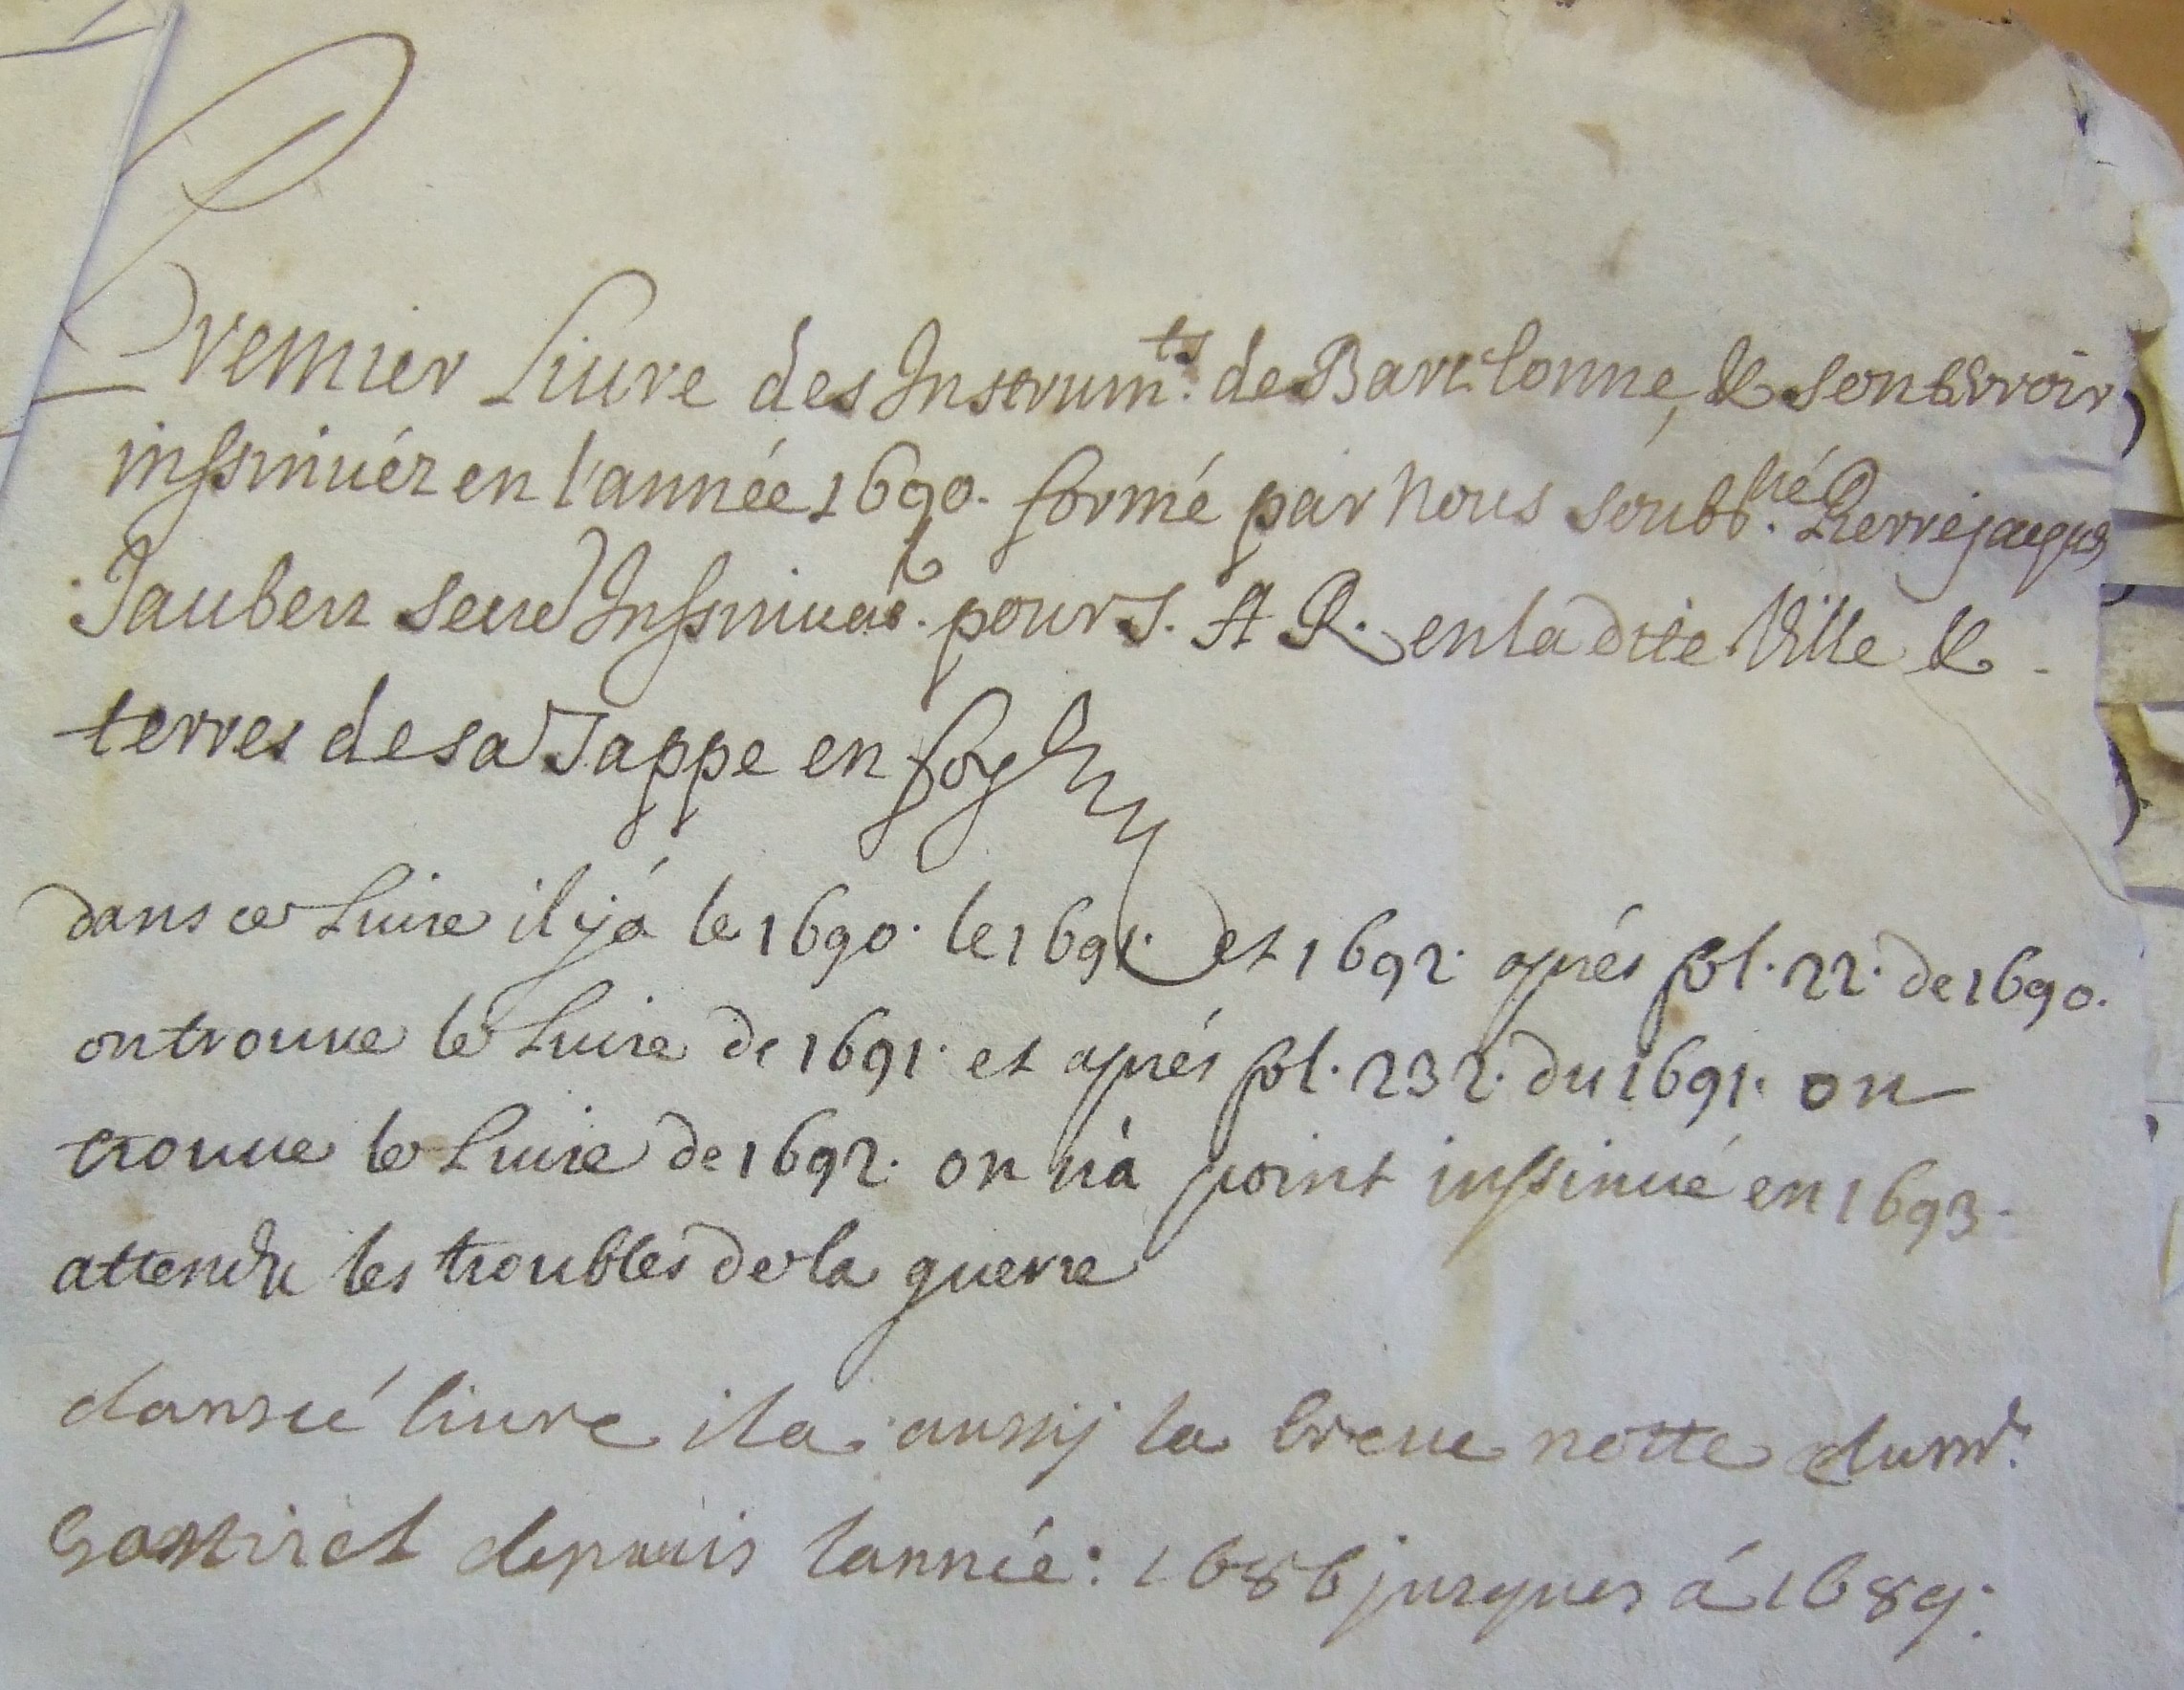 Premier Liure des Instrum.ts de Barcelonne, & son terroir
insinuéz en l'année 1690. formé par Nous soubb.né Pierre jacques
Jaubert secre Insinuar. pour S. A R. en la dite Ville &
terres de sa Tappe en foy
dans ce Liure il yá le 1690. le 1691. et 1692. aprés fol. 22. de 1690.
on trouue le Liure de 1691. et aprés fol. 232. du 1691. on
trouue le Liure de 1692. on n'à point inssinué en 1693.
attendu les troubles de la guerre
dans cé liure ila aussij la breue notte du mr.
depuis lannée: 1686 jusques á 1689.